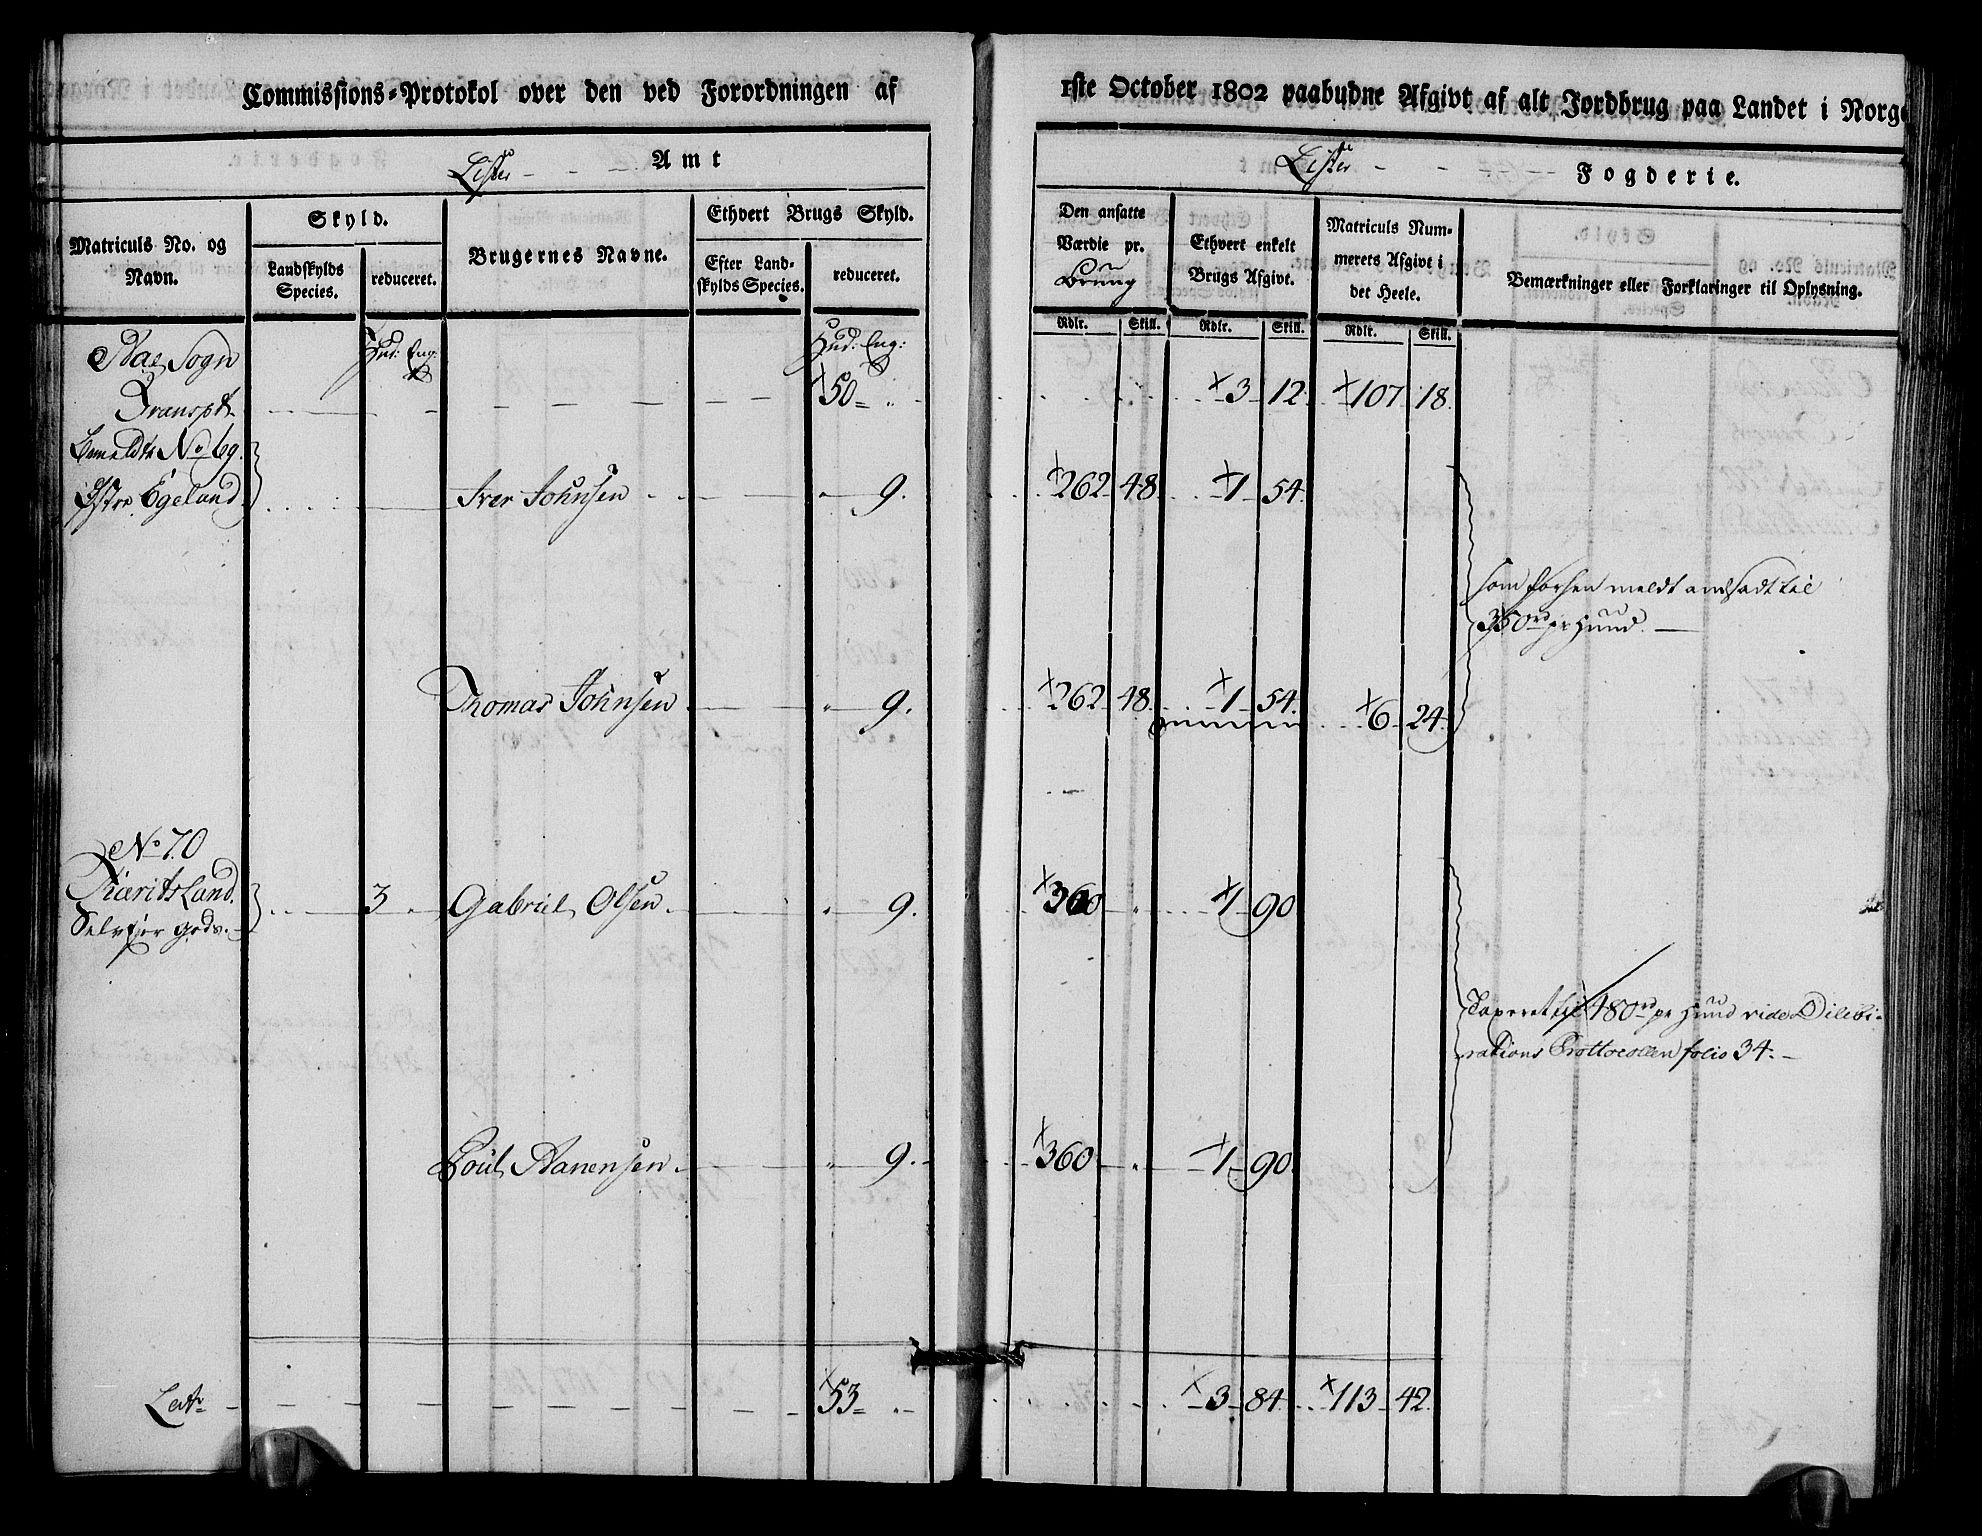 Commissions-Protokol over den ved Forordningen af
1ste October 1802 paabudne Afgivt af alt Jordbrug paa Landet i Norge
Lister Amt
Lister Fogderie.
Matriculs No. og Navn.
Skyld.
Landskylds Species.
reduceret.
Brugernes Navne.
Ethvert Brugs Skyld.
Efter Landskylds Species.
reduceret.
Den ansatte Værdie pr. Brúug
Ethvert enkelt Brugs Afgivt.
Matriculs Nummerets Afgivt i det Heele.
Bemærkninger eller Forklaringer til Oplysning.
Rdlr. Skill. Rdlr. Skill. Rdlr. Skill.
Sogn Hud: Eng: Hud: Eng:
Transpt 50 3 12 107 18
No 69
Østre Egeland Iver Johnsen 9. 262 48 1 54
som forhen meldt andsadt til
350 rd pr Huud.
Thomas Johnsen 9. 262 48 1 54 6 24
No 70
3 Gabriel Olsen 9. 360 1 90
Selveier gods.
Taxeret til 480 rd pr Huud vide Dilebi-
rations Prottocollen folio 34.
Poul Aanensen 9. 360 1 90
Lat. 53 3 84 113 42